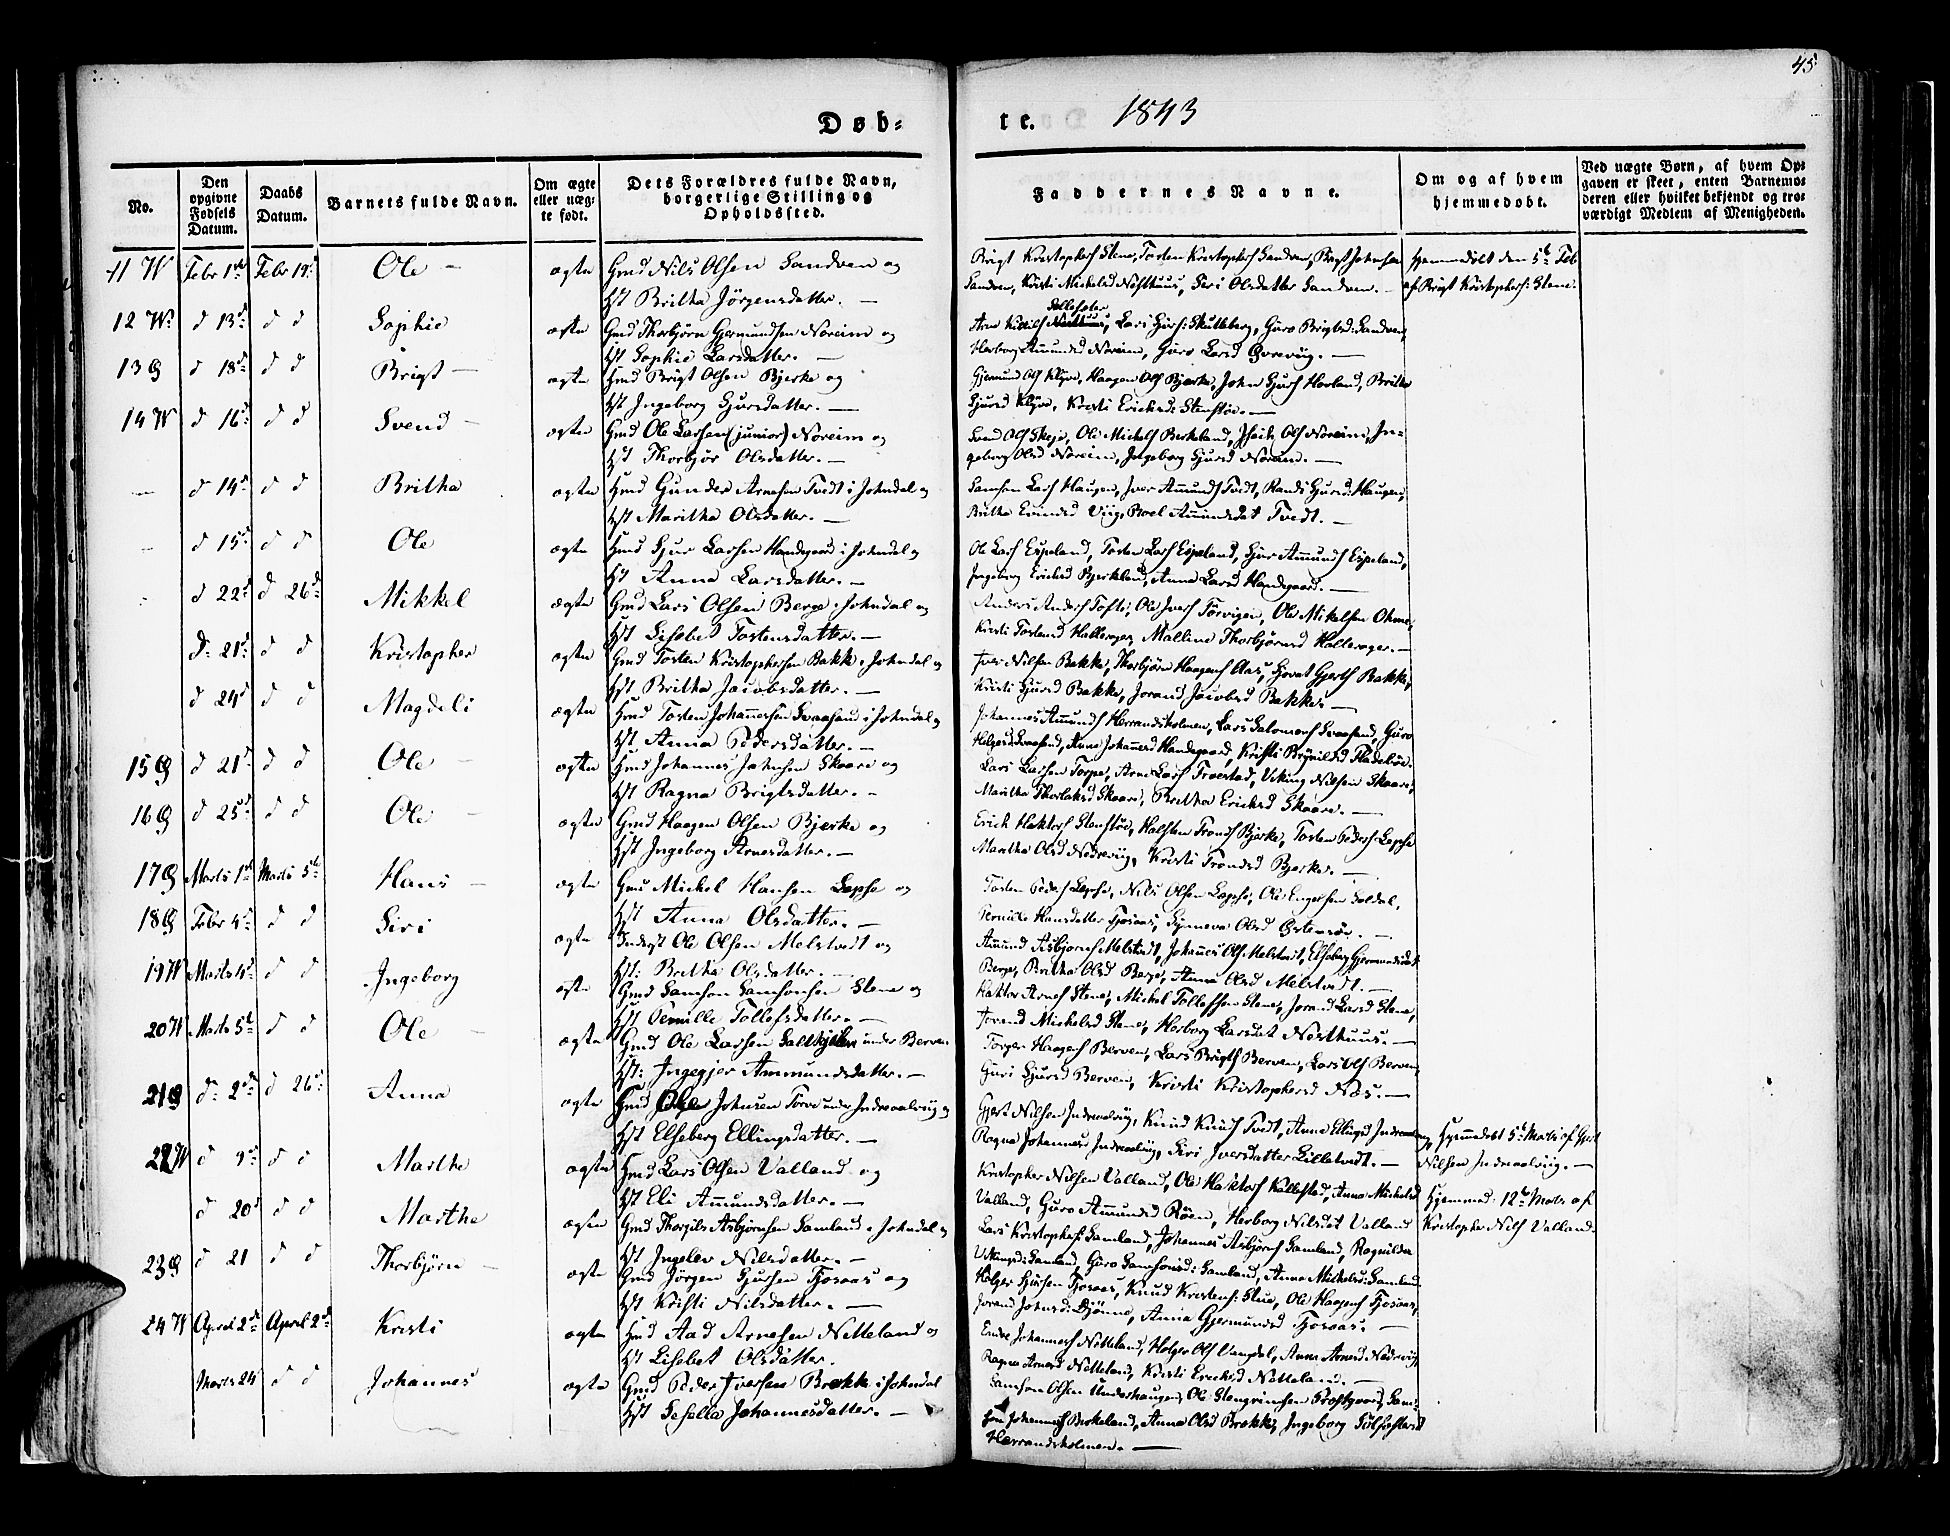 45
Døb-
te. 1843
No.
Den opgivne Fødsels Datum.
Daabs Datum.
Barnets fulde Navn.
Om ægte eller uægte født.
Dets Forældres fulde Navn, borgerlige Stilling og Opholdssted.
Faddernes Navne.
Om og af hvem hjemmedøbt.
Ved uægte Børn, af hvem Opgaven er skeet, enten Barnemoderen eller hvilket bekjendt og troværdigt Medlem af Menigheden.
11 W Febr 1ste Febr 19de Ole ægte Gmd Nils Olsen Sandven og
Hst Britha Jörgensdatter.
Brigt Kristophers Stene, Torsten Kristophers Sandven, Brigt Johnsen
Sandven, Kristi Mickelsd Nesthuus, Siri Olsdatter Sandven.
Hjemmedöbt den 5te Feb
af Brigt Kristophers: Stene.
12 W d 13d d d Sophie ægte Gmd Thorbjörn Gjermundsen Noreim og
Hst Sophie Larsdatter.
Lars Sjurs: Skutleberg, Guro Brigtsd: Sandven,
Herborg Amundsd Noreim, Guro Larsd Övreviig.
13 G d 18d d d Brigt ægte Gmd Brigt Olsen Bjerke og
Hst Ingeborg Sjursdatter.
Gjermund Ols Klyve, Haagen Ols Bjerke, John Sjurs Hovland, Britha
Sjursd Klyve, Kristi Ericksd: Stenstöe.
14 W d 16d d d Svend ægte Gmd Ole Larsen (junior) Noreim og
Hst Thorbjör Olsdatter.
Svend Ols Skeje, Ole Mickels Berkeland, Ols Noreim, In-
geborg Olsd Noreim, Ingeborg Sjursd Noreim.
d 14d d d Britha ægte Hmd Gunder Arnesen Tvedt i Johndal og
Hst Maritha Olsdatter.
Samson Lars Haugen, Iver Amunds Tvedt, Randi Sjursd: Haugen,
Britha Evindsd Viig, Roel Amundsdat Tvedt.
d 15d d d Ole ægte Hmd Sjur Larsen Handegaard i Johndal og
Hst Anna Larsdatter.
Ole Lars Espeland, Torsten Lars Espeland, Sjur Amunds Espeland,
Ingeborg Ericksd Bjerkland, Anna Larsd Handegaard.
d 22d d 26d Mikkel ægte Gmd Lars Olsen Berge i Johndal og
Hst Lisebet Torstensdatter.
Anders Anders Tofte, Ole Ivers Törvigen, Ole Mikelsen Ohme,
Kristi Torstensd Halleroger, Malline Thorbjörnsd Halleroger.
d 21d d d Kristopher ægte Gmd Torsten Kristophersen Bakke i Johndal og
Hst Britha Jacobsdatter.
Iver Nilsen Bakke, Thorbjörn Haagens Aas, Sjovat Gjerts Bakke,
Kristi Sjursd Bakke, Jorand Jacobsd Bakke
d 24d d d Magdeli ægte Hmd Torsten Johannesen Svaasand i Johndal og
Hst Anna Pedersdatter.
Johannes Amunds Herrandsholmen, Lars Salomons Svaasand, Guro
Helgesd Svaasand, Anna Johannesd Handegaard, Kristi Brynildsd Fladeböe.
15 G d 21d d d Ole ægte Gmd Johannes Johnsen Skaare og
Hst Ragna Brigtsdatter.
Lars Larsen Torpe, Arne Lars Tveestad, Viking Nilsen Skaare,
Maritha Thorlaksd Skaare, Britha Ericksd Skaare.
16 G d 25d d d Ole ægte Gmd Haagen Olsen Bjerke og
Hst Ingeborg Arnesdatter.
Erick Haktors Stenstöe, Halsten Tronds Bjerke, Torsten Peders: Lepse
Maritha Olsd Nedreviig, Kristi Trondsd Bjerke.
17 G Marts 1ste Marts 5te Hans ægte Gmd Mickel Hansen Lepse og
Hst Anna Olsdatter.
Torsten Peders Lepse, Nils Olsen Lepse, Ole Engelsen Soldal,
Pernille Hansdatter Fosaas, Synneva Olsd Östensöe.
18 G Febr 4d d d Siri ægte Inderst Ole Olsen Melstvedt og
Hst: Britha Olsdatter.
Amund Asbjörns Melstvedt, Johannes Ols: Melstvedt, Elseberg Gjermundsdat
Berge, Britha Olsd Berge, Anna Olsd Melstvedt.
19 W Marts 4d d d Ingeborg ægte Gmd Samson Samsonsen Stene og
Hst Pernille Tollefsdatter.
Haktor Arnes Stene, Mickel Tollefsen Stene, Jorand Larsd Stene,
Jorand Mickelsd Stene, Herborg Larsdat Nesthuus.
20 W Marts 5te d d Ole ægte Gmd Ole Larsen Saltkjelen under Berven
Hst: Ingegjer Ammundsdatter.
Torger Haagens Berven, Lars Brigts Berven, Lars Ols Berven,
Guri Sjursd Berven, Kristi Kristophersd Næs.
21 G d 2d d 26d Anna ægte Hmd Johnsen Torve under Indreaalviig og
Hst Elseberg Ellingsdatter.
Gjert Nilsen Indreaalviig, Knud Knuds Tvedt, Anna Ellingsd Indreaalviig
Ragna Johannesd Indreaalviig, Siri Iversdatter Lilletvedt.
Hjemmedöbt 5te Marts af Gjert
Nilsen Indreaalviig.
22 W d 9de d d Marthe ægte Hmd Lars Olsen Valland og
Hst Eli Amundsdatter.
Kristopher Nilsen Valland, Ole Haktors Kallestad, Anna Mickelsd
Valland, Guro Amundsd Röen, Herborg Nilsdat Valland
Hjemmed: 12te Marts af
Kristopher Nils Valland.
d 20d d d Marthe ægte Gmd Thorgils Asbjörnsen Samland i Johndal og
Hst Ingelev Nilsdatter.
Lars Kristophers: Samland, Johannes Asbjörns Samland, Ragnilda
Vikingsd: Samland, Guro Samsonsd: Samland, Anna Mickelsd: Samland
23 G d 21 d d Thorbjörn ægte Gmd Jörgen Sjursen Fosaas og
Hst Kristi Nilsdatter.
Holger Sjursen Fosaas, Knud Kristens: Stue, Ole Haagens Fosaas,
Jorand Johnsd: Djönne, Anna Gjermundsd Fosaas.
24 W April 2d April 2d Kristi ægte Hmd Aad Arnesen Netteland og
Hst Lisebet Olsdatter.
Endre Johannes Netteland, Holger Ols Vangdal, Anna Arnesd Nedreviig
Ragna Arnesd Netteland, Kristi Ericksd Netteland.
Marts 24 d d Johannes ægte Gmd Peder Iversen Brekke i Johndal
Hst Sesella Johannesdatter.
Samson Olsen Underhaugen, Ole Stengrimsen Prestgaard, Sam-
son Johannes Birkeland, Anna Olsd Brekke, Ingeborg
Herrandsholmen.